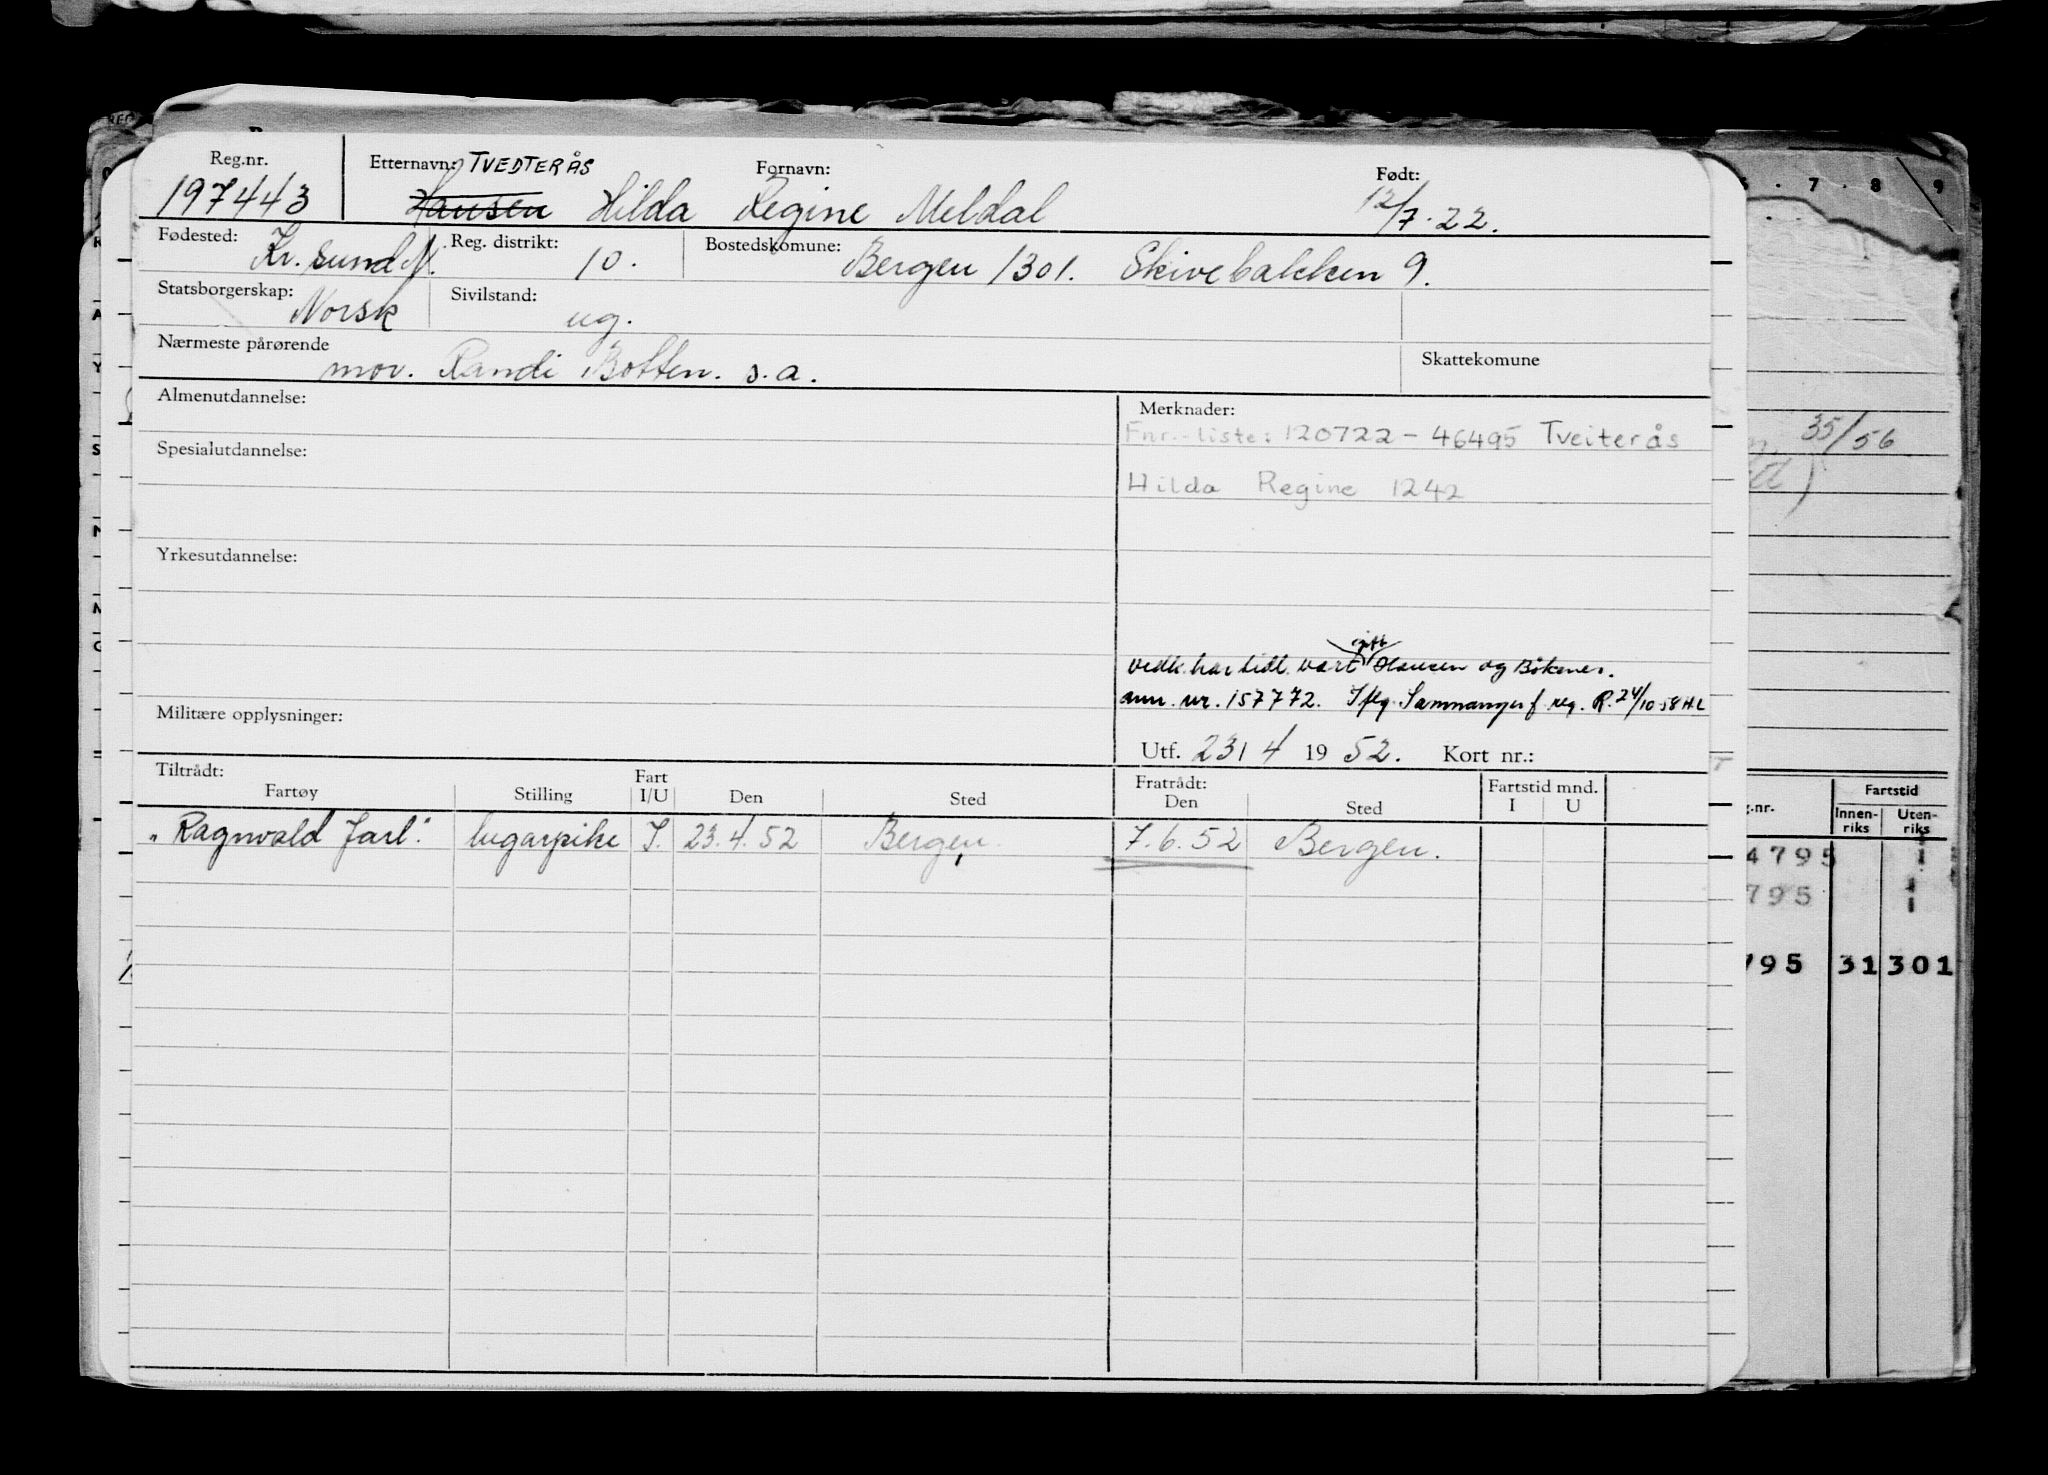 Reg.nr. Etternavn: TVEDTERÅS Fornavn: Født:
197443 Hansen Hilda Regine Meldal 12/7.22.
Fødested: Kr. sund N. Reg. distrikt: 10. Bostedskomune: Bergen 1301. Skivebakken 9.
Statsborgerskap: Norsk Sivilstand: ug.
Nærmeste pårørende mor. Randi Botten. s.a. Skattekomune
Almenutdannelse:
Merknader:
Fnr.-liste: 120722-46495 Tveiterås
Spesialutdannelse:
Hilda Regine 1242
Yrkesutdannelse:
gift
vedk. har tidl. vært Hansen og Bökner.
ann. nr. 157772. Iflg. Samnanger f. reg. R. 24/10 58 H.L
Militære opplysninger:
Utf. 23/4 1952. Kort nr.:
Tiltrådt: Fratrådt:
Fartøy Stilling Fart I/U Den Sted Den Sted Fartstid mnd. I U
"Ragnvald Jarl". lugarpike I. 23.4.52 Bergen 7.6.52 Bergen.
7 8 9
35/56
g.nr. Fartstid
Innen-riks Uten-riks
4795
795
795 31 301